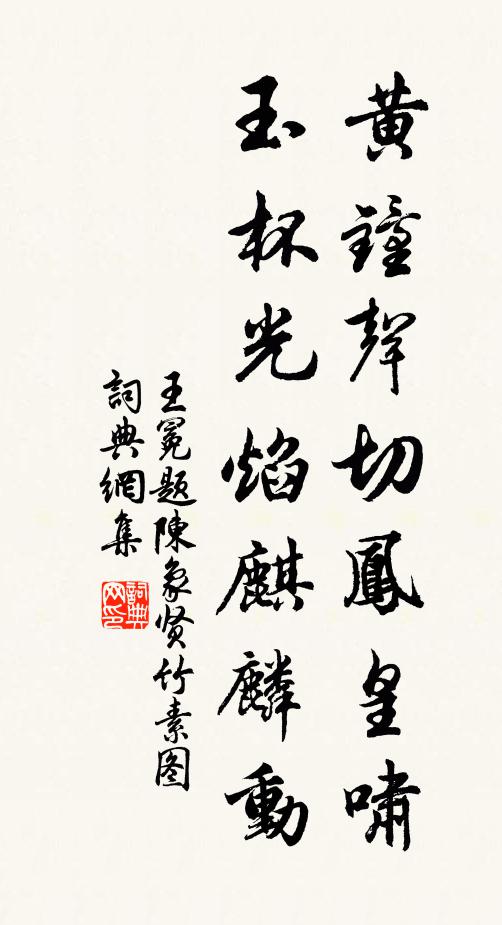 黃鐘聲切鳳皇嘯
玉杯光焰麒麟動
王冕题陳象贤竹素图
詞典網集
詞典网印